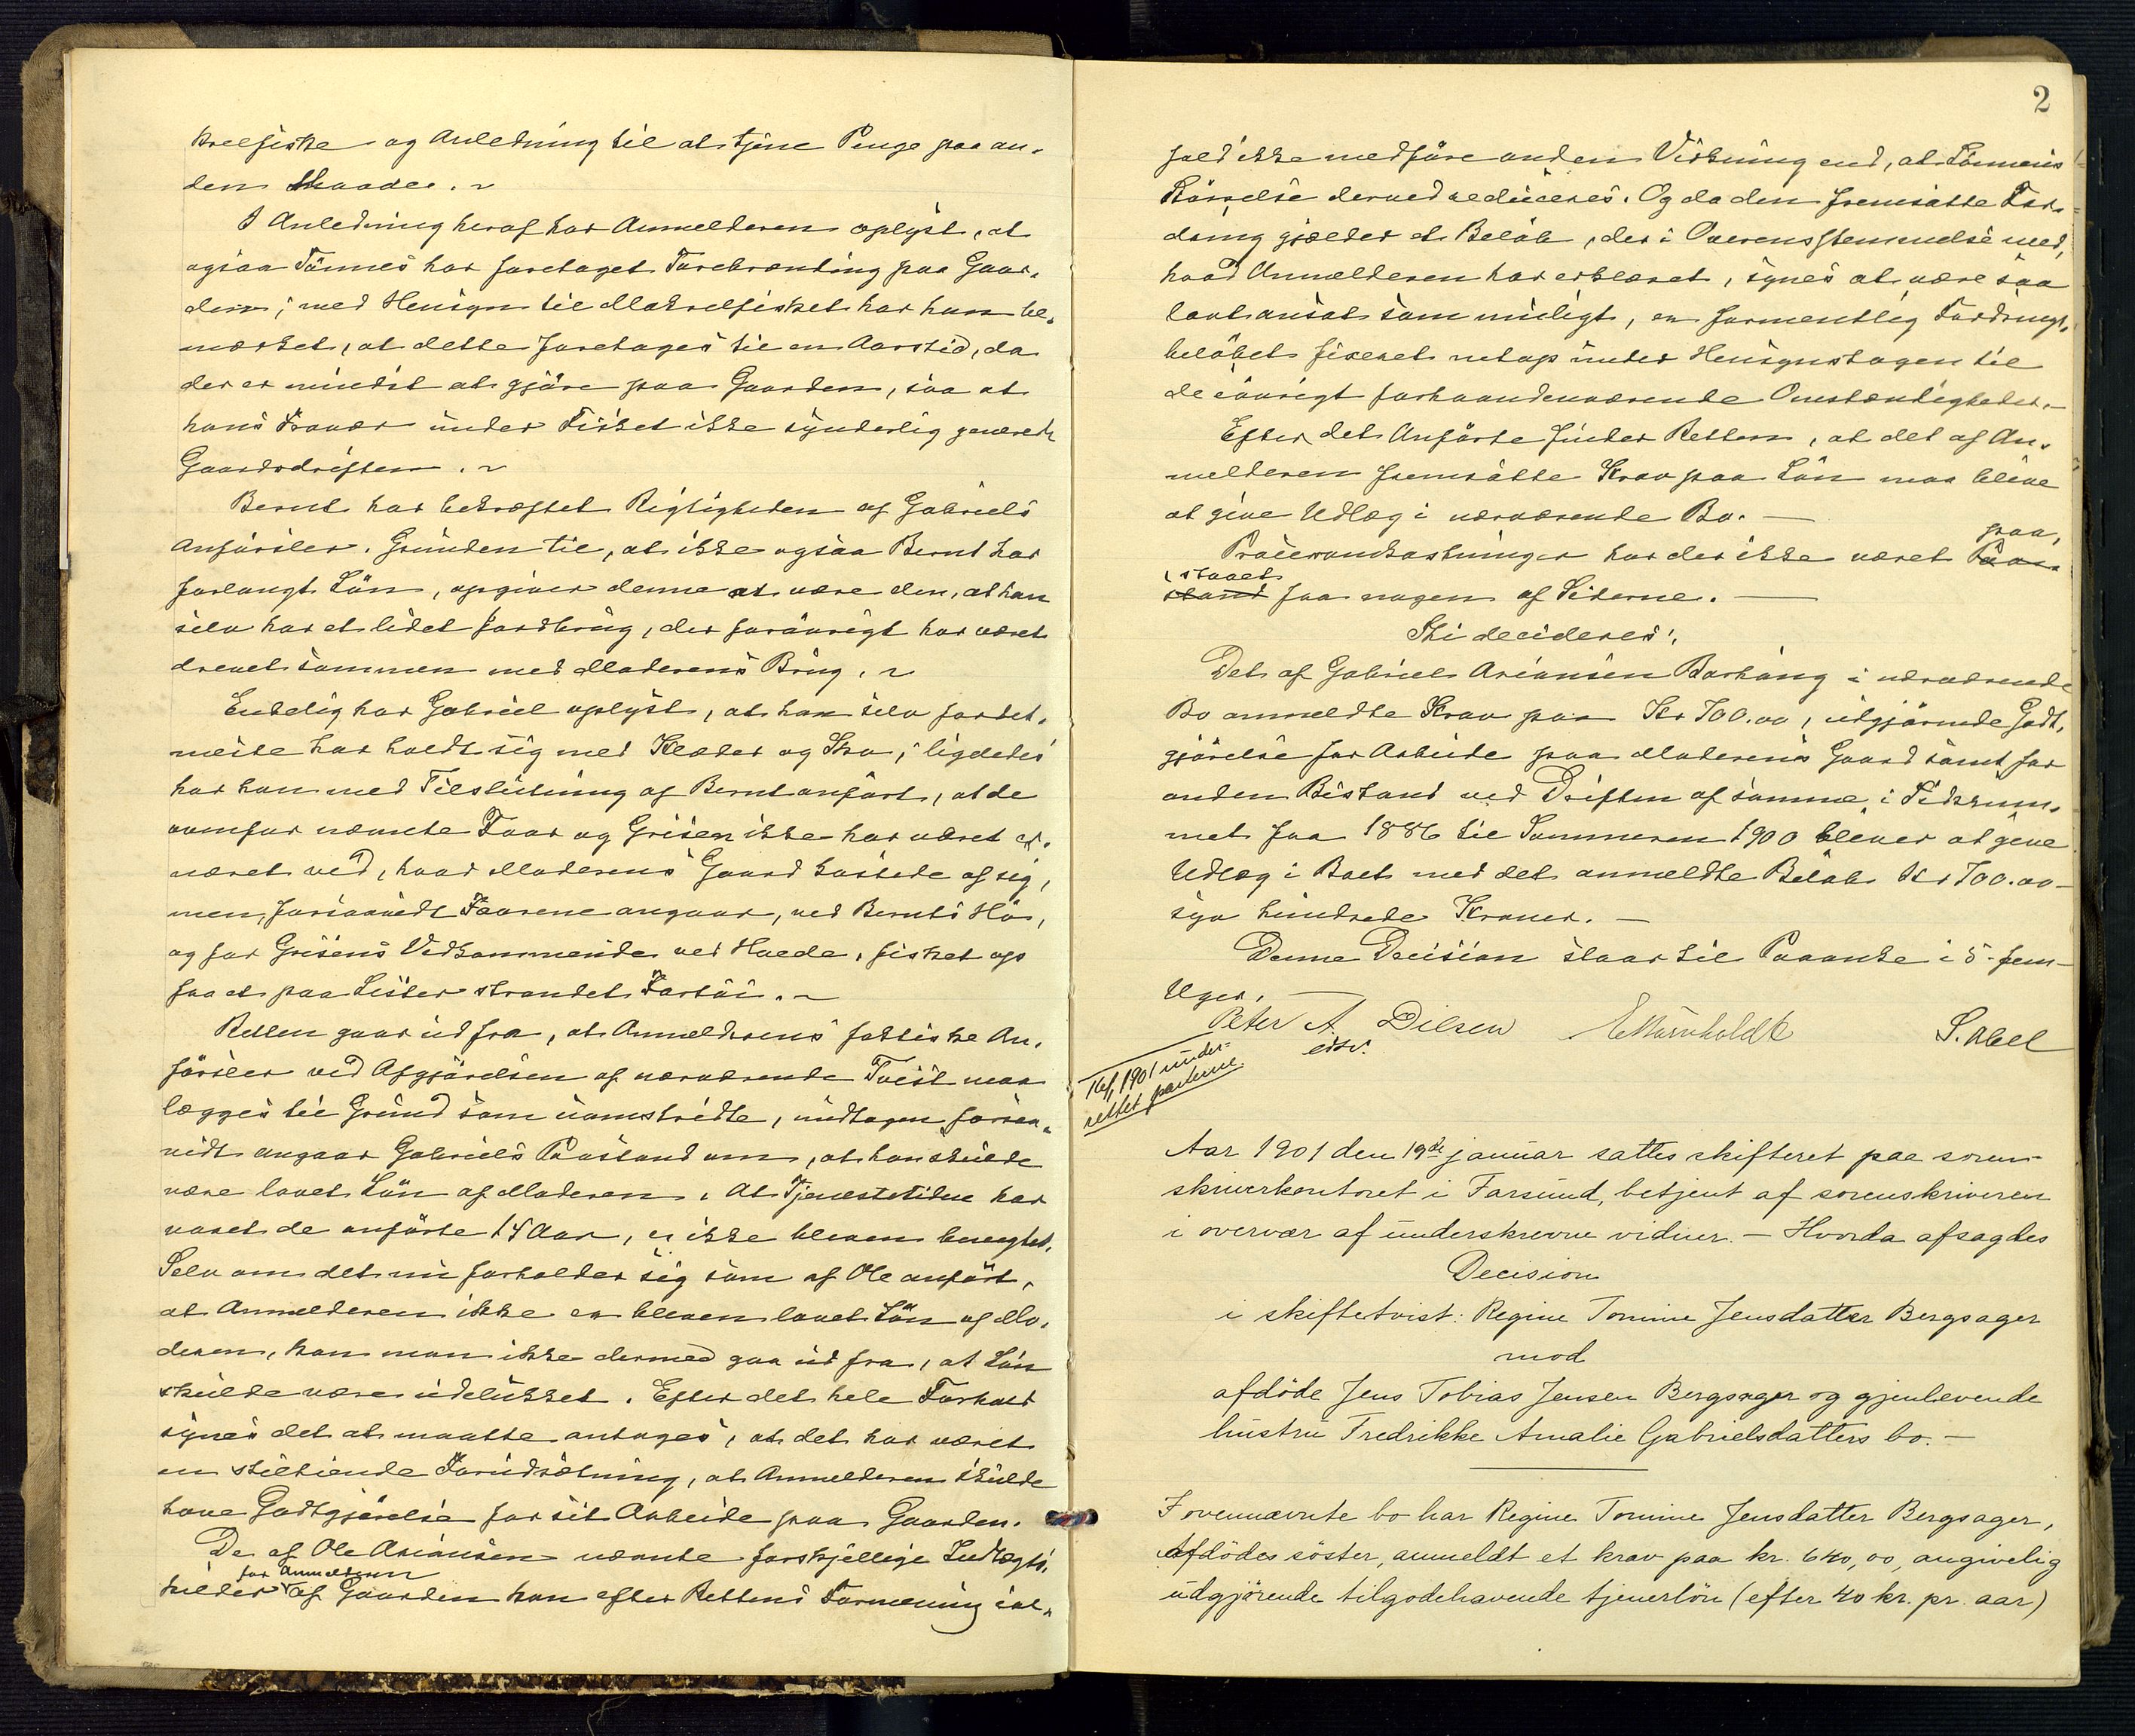 krelfiske og Anledning til at tjene Penge paa an-
den Maade. ~
I Anledning heraf har Anmelderen oplyst, at
ogsaa Tønnes har foretaget Tarebrænding paa Gaar-
den; med Hensyn til Makrelfisket har han be-
mærket, at dette foretages til en Aarstid, da
der er mindst at gjøre paa Gaarden, saa at
hans Fravær under Fisket ikke synderlig generede
Gaardsdriften. ~
Bernt har bekræftet Rigtigheden af Gabriels
Anførsler. Grunden til, at ikke ogsaa Bernt har
forlangt Løn, opgiver denne at være den, at han
selv har et lidet Jordbrug, der forøvrigt har været
drevet sammen med Moderens Brug. ~
Endelig har Gabriel oplyst, at han selv fordet-
meste har holdt sig med Klæder og Sko; ligeledes
har han med Tilslutning af Bernt anført, at de
ovenfor nævnte Faar og Grisen ikke har været er-
næret ved, hvad Moderens Gaard kastede af sig,
men, forsaavidt Faarene angaar, ved Bernts Hø,
og for Grisens Vedkommende ved Hvede, fisket op
fra et paa Lister strandet Fartøi. ~
Retten gaar ud fra, at Anmelderens faktiske An-
førsler ved Afgjørelsen af nærværende Tvist maa
lægges til Grund som uomstridte, undtagen forsaa-
vidt angaar Gabriels Paastand om, at han skulde
være lovet Løn af Moderen. At Tjenestetiden har
varet de anførte 14 Aar, er ikke bleven benegtet.
Selv om det nu forholder sig som af Ole anført,
at Anmelderen ikke er bleven lovet Løn af Mo-
deren, kan man ikke dermed gaa ud fra, at Løn
skulde være udelukket. Efter det hele Forhold
synes det at maatte antages, at det har været
en stiltiende Forudsætning, at Anmelderen skulde
have Godtgjørelse for sit Arbeide paa Gaarden.
De af Ole Ariansen nævnte forskjellige Indtægts-
for Anmelderen
kilder af Gaarden kan efter Rettens Formening ial-
2
fald ikke medføre anden Virkning end, at Lønnens
Størrelse derved reduceres. Og da den fremsatte For-
dring gjælder et Beløb, der i Overensstemmelse med,
hvad Anmelderen har erklæret, synes at være saa
lavt ansat som muligt, er formentlig Fordrings-
beløbet fixeret netop under Hensynstagen til
de øvrigt forhaandenværende Omstændigheder. -
Efter det Anførte finder Retten, at det af An-
melderen fremsatte Krav paa Løn maa blive
at give Udlæg i nærværende Bo. —
paa-
Procesomkostninger har der ikke været Paa-
staaet
stand fra nogen af Siderne. —
Thi decideres:
Det af Gabriel Ariansen Barhaug i nærværende
Bo anmeldte Krav paa Kr 700.00, udgjørende Godt-
gjørelse for Arbeide paa Moderens Gaard samt for
anden Bistand ved Driften af samme i Tidsrum-
met fra 1886 til Sommeren 1900 bliver at give
Udlæg i Boet med det anmeldte Beløb Kr 700.00 -
syv hundrede Kroner. —
Denne Decision staar til Paaanke i 5 - fem -
Uger. —
Peter A. Dilsen
S. Abel
edsv.
1901 under-
rettet parterne.
Aar 1901 den 19de januar sattes skifteret paa soren-
skriverkontoret i Farsund, betjent af sorenskriveren
i overvær af underskrevne vidner. — Hvorda afsagdes
Decision
i skiftetvist: Regine Tomine Jensdatter Bergsager
mod
afdöde Jens Tobias Jensen Bergsager og gjenlevende
hustru Fredrikke Amalie Gabrielsdatters bo. —
I ovennævnte bo har Regine Tomine Jensdatter Bergsager,
Afdödes söster, anmeldt et krav paa kr. 640,00, angivelig
udgjörende tilgodehavende tjenerlön (efter 40 kr. pr. aar)